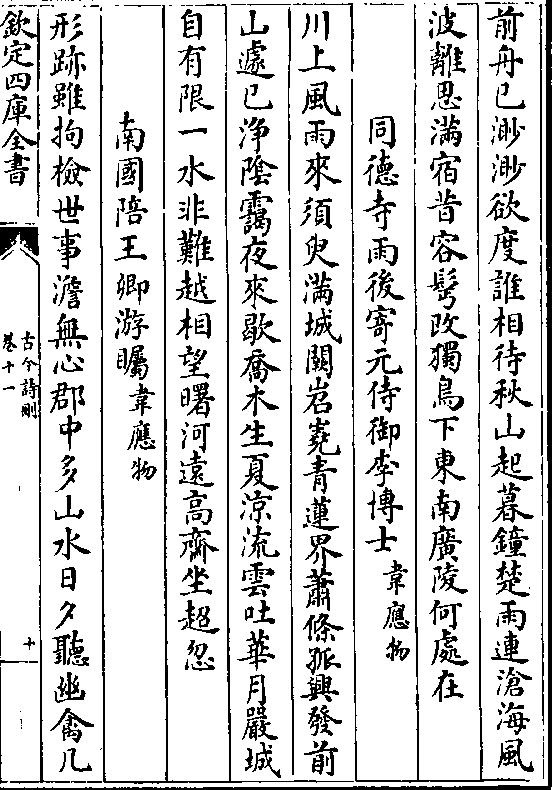 前舟已渺渺欲度誰相待秋山起暮鐘楚雨連滄海風
波離思滿宿昔容鬂改獨鳥下東南廣陵何處在
同德寺雨後寄元侍御李博士 韋應物
川上風雨來須臾滿城闕岧嶤青蓮界蕭條孤興發前
山遽已浄陰靄夜來歇喬木生夏涼流雲吐華月嚴城
自有限一水非難越相望曙河遠高齋坐超忽
南國陪王卿游矚 韋應物
形跡雖拘檢世事澹無心郡中多山水日夕聽幽禽几
欽定四庫全書
古今詩刪
卷十一
十